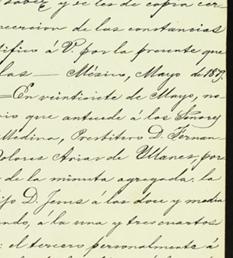 saber y se les de copia cer
reccion de las constancias
tifico á V. por la presente que
las — Mésico, Mayo de 187
En veintisiete de Mayo, no
cio que antecede á los Señores
Medina, Presbítero D. Fernan
Dolores Arias de Illanes, por
de la minuta agregada, la
ijo D. Jesus á las doce y media
ndo, á la una y tres cuartos
; el tercero personalmente á